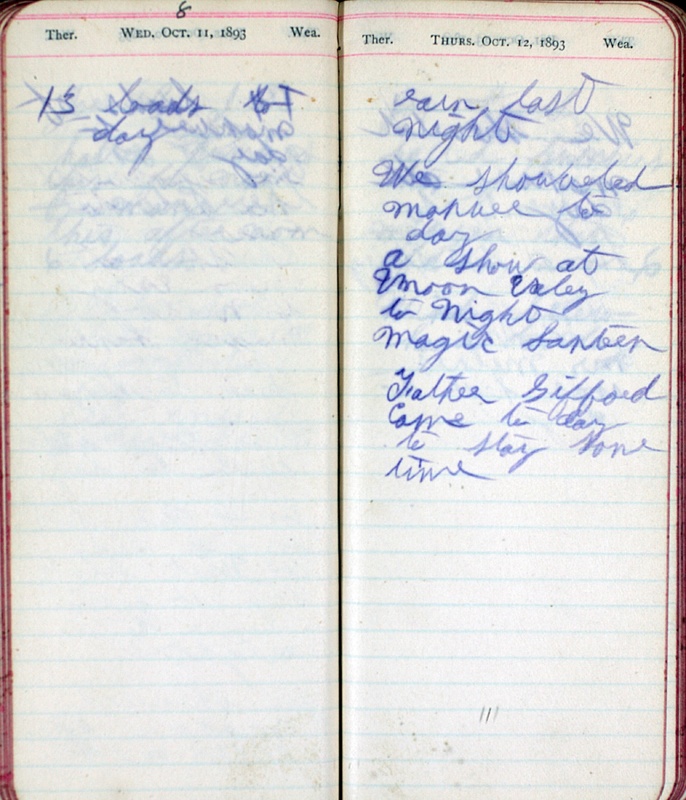 8
Ther. WED. OCT. 11, 1893 Wea.
13 loads to
day
Ther. THURS. OCT. 12, 1893 Wea.
rain last
night
We shouveled
manuer to
day
a show at
Moon Valey
to Night
Magic Lantern
Father Gifford
Came to day
to stay some
time
111